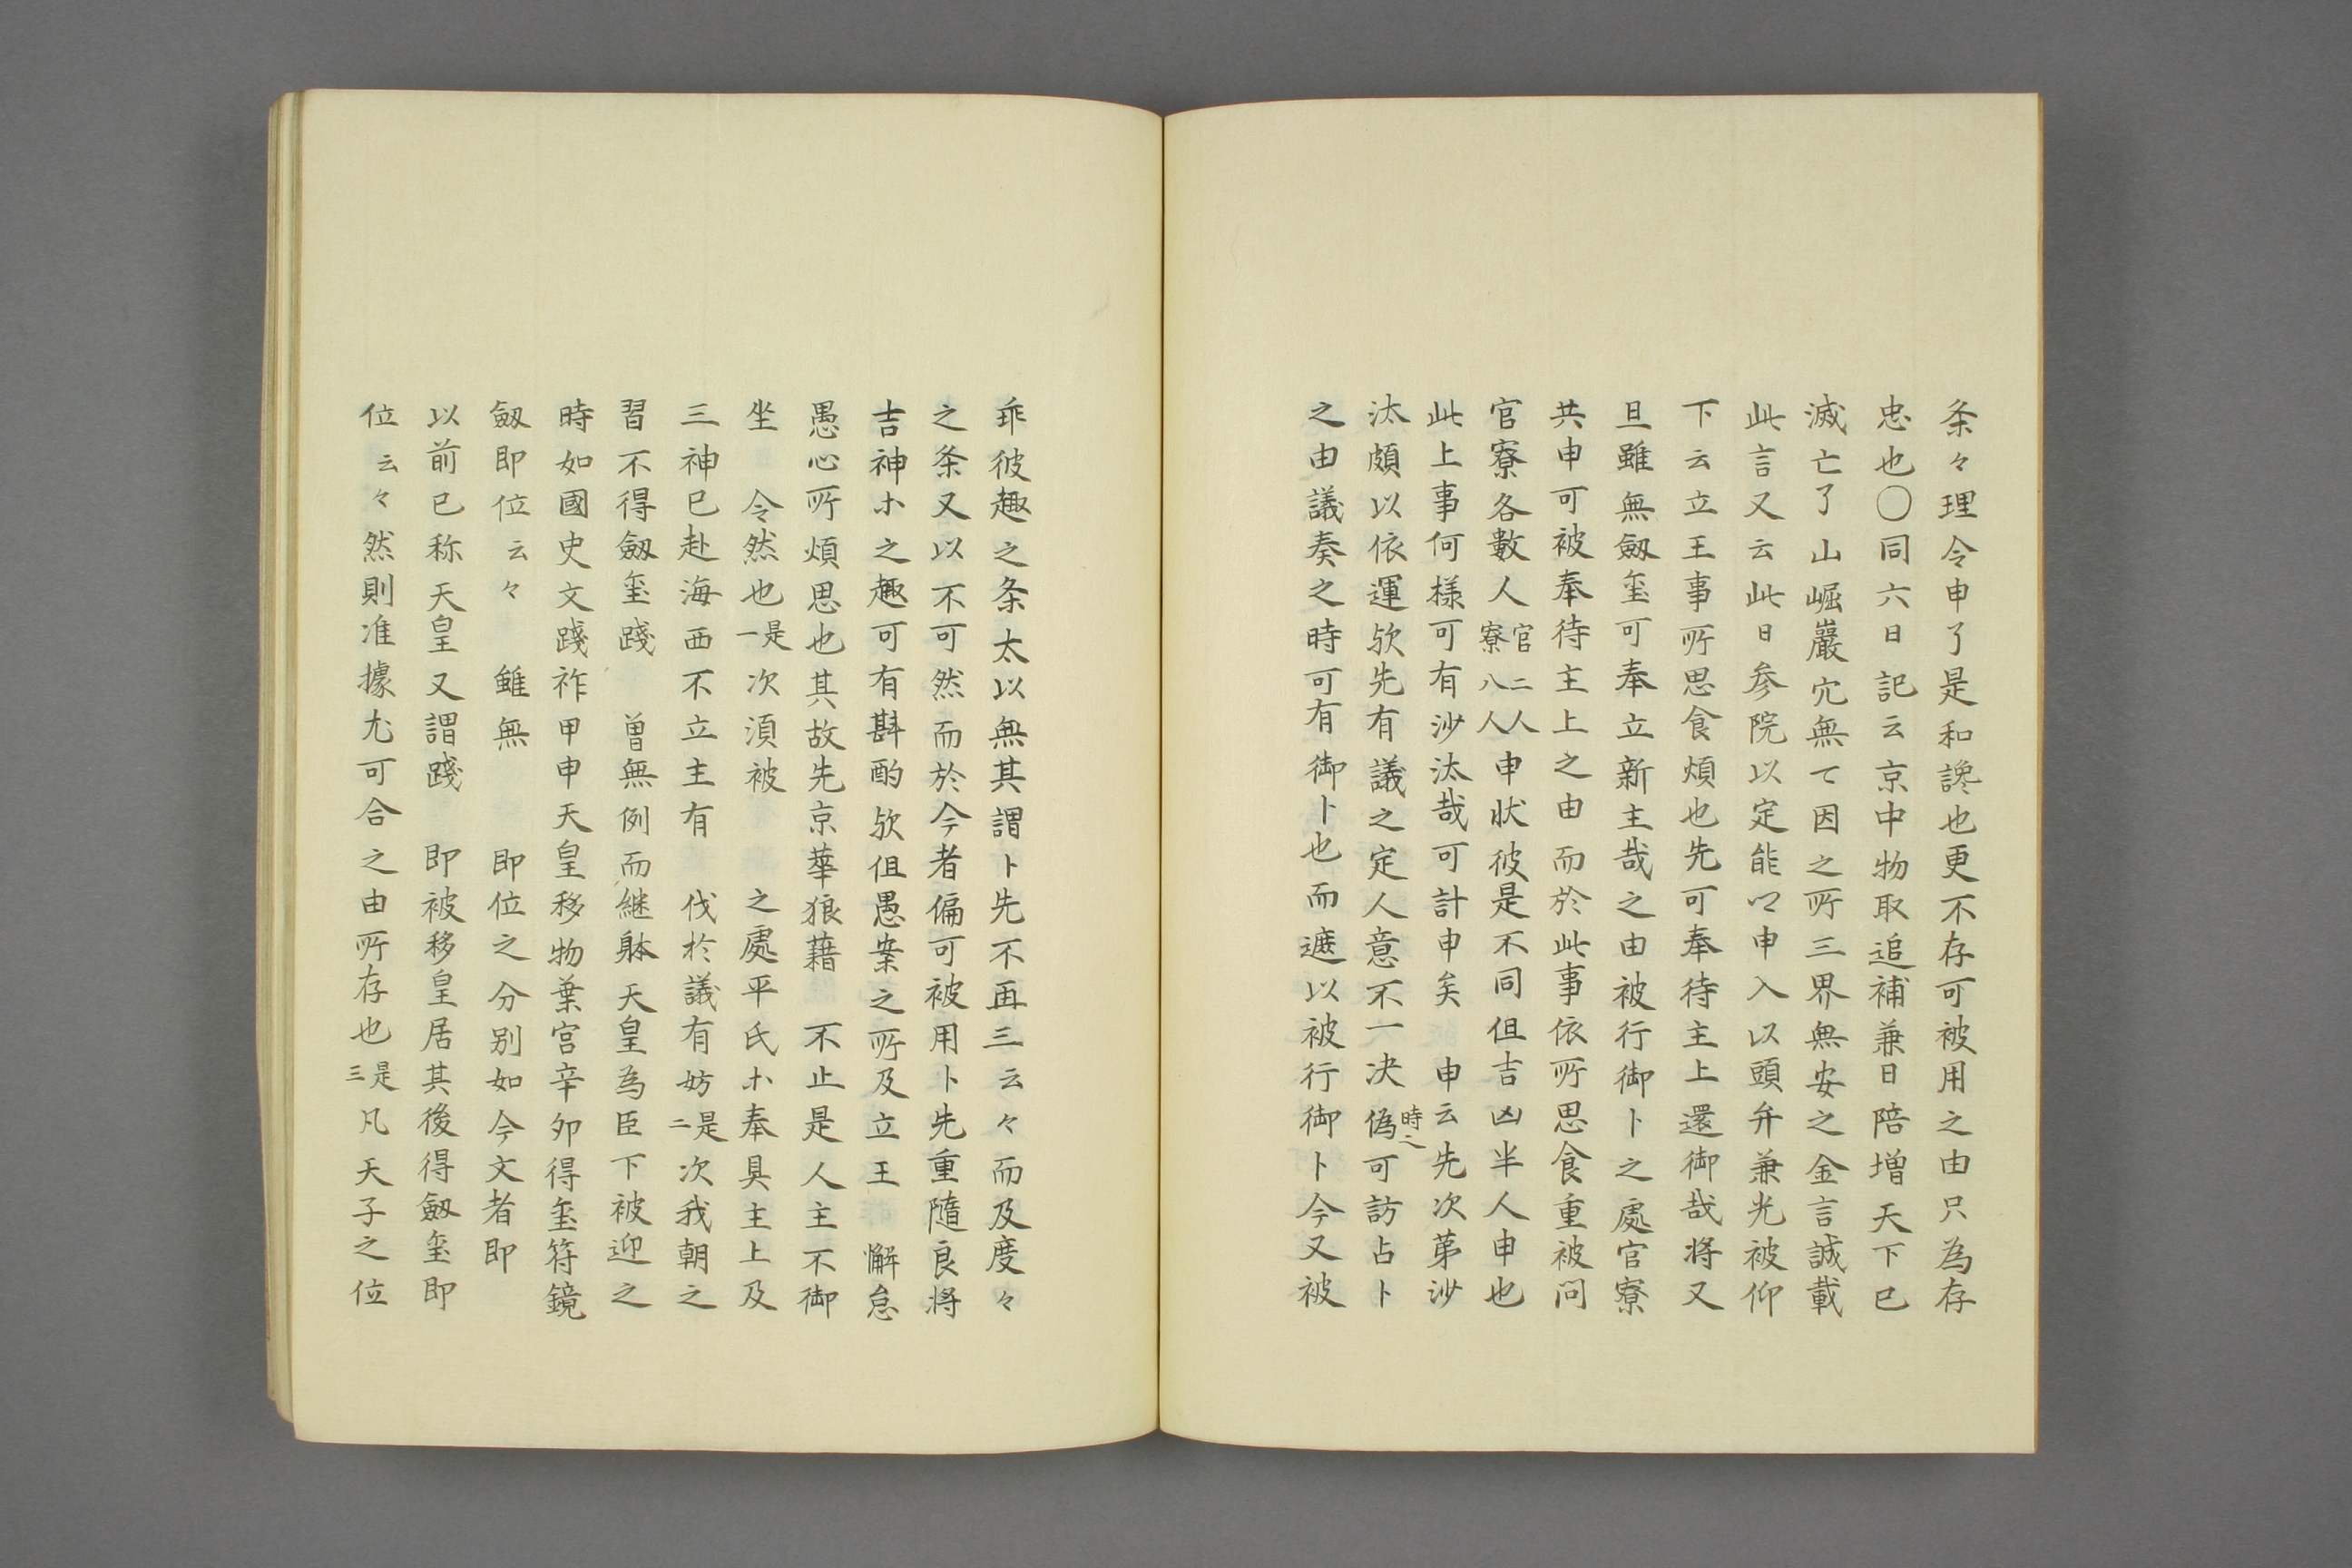 条々理令申了是和讒也更不存可被用之由只為存
忠也〇同六日記云京中物取追補兼日陪増天下已
滅亡了山崛巖穴無て因之所三界無安之金言誠載
此言又云此日参院以定能申入以頭弁兼光被仰
下云立王事所思食煩也先可奉待主上還御哉将又
旦雖無劔玺可奉立新主哉之由被行御卜之處官寮
共申可被奉待主上之由而於此事依所思食重被問
官寮各數人官二人寮八人申状彼是不同但吉凶半人申也
此上事何様可有沙汰哉可計申矣　申云先次第沙
汰頗以依運欤先有議之定人意不一决時之偽可訪占卜
之由議奏之時可有御卜也而遮以被行御卜今又被
乖彼趣之条太以無其謂卜先不再三云々而及度々
之条又以不可然而於今者偏可被用卜先重隨良将
吉神ホ之趣可有斟酌欤但愚案之所及立王　懈怠
愚心所煩思也其故先京華狼藉　不止是人主不御
坐　令然也是一次須被　　之處平氏ホ奉具主上及
三神已赴海西不立主有　伐於議有妨是二次我朝之
習不得劔玺踐　曽無例而継躰天皇為臣下被迎之
時如國史文踐祚甲申天皇移物葉宮辛夘得玺符鏡
劔即位云々　雖無　　即位之分别如今文者即
以前已称天皇又謂踐　即被移皇居其後得劔玺即
位云々然則准據尤可合之由所存也是三凡天子之位